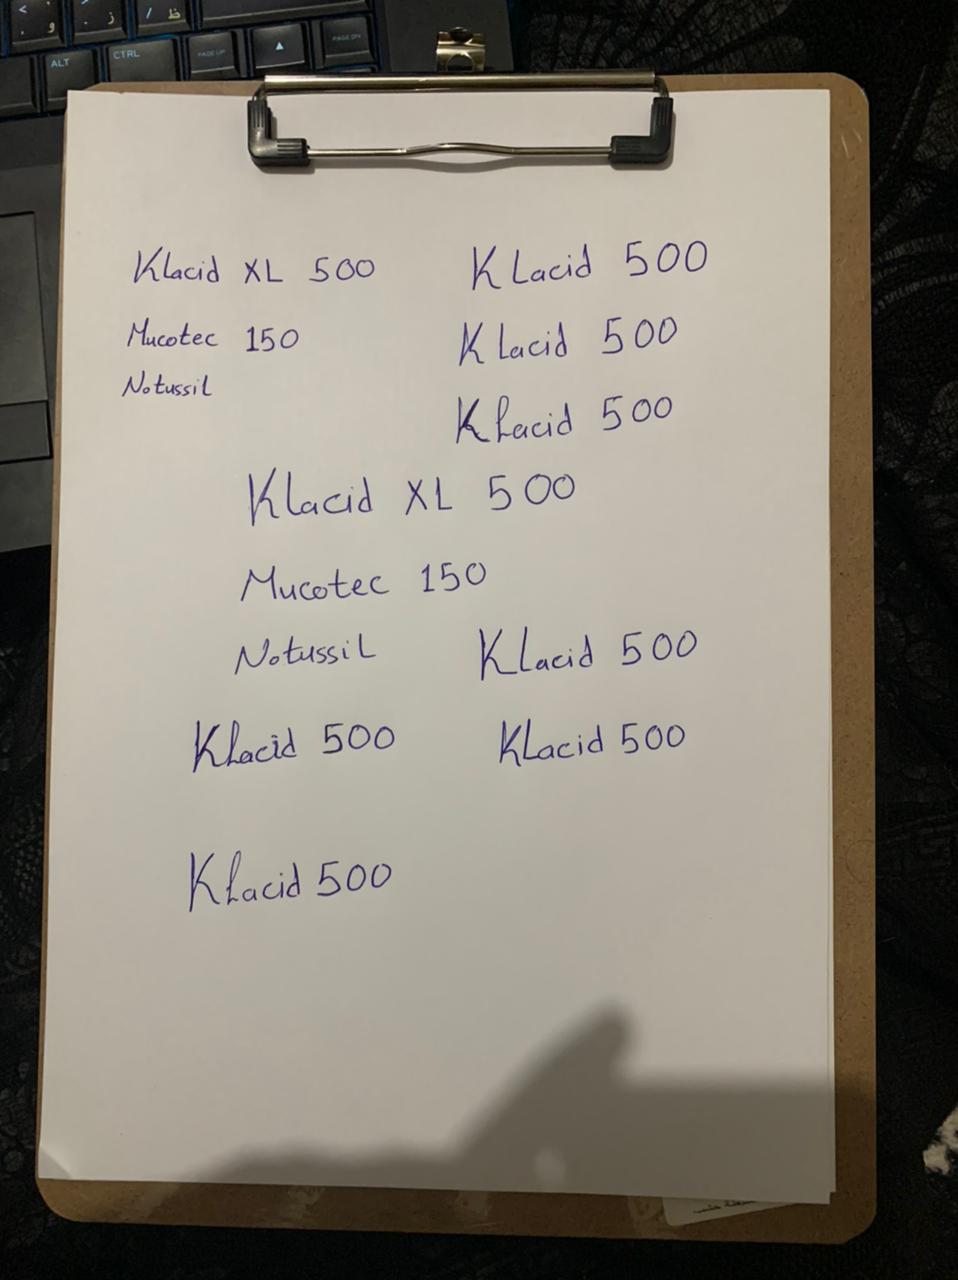 ALT
CTRL
PAGE UP
PAGE DN
Klacid XL 500
Klacid 500
Mucotec 150
Klacid 500
Notussil
Klacid 500
Klacid XL 500
Mucotec 150
Notussil
Klacid 500
Klacid 500
Klacid 500
Klacid 500